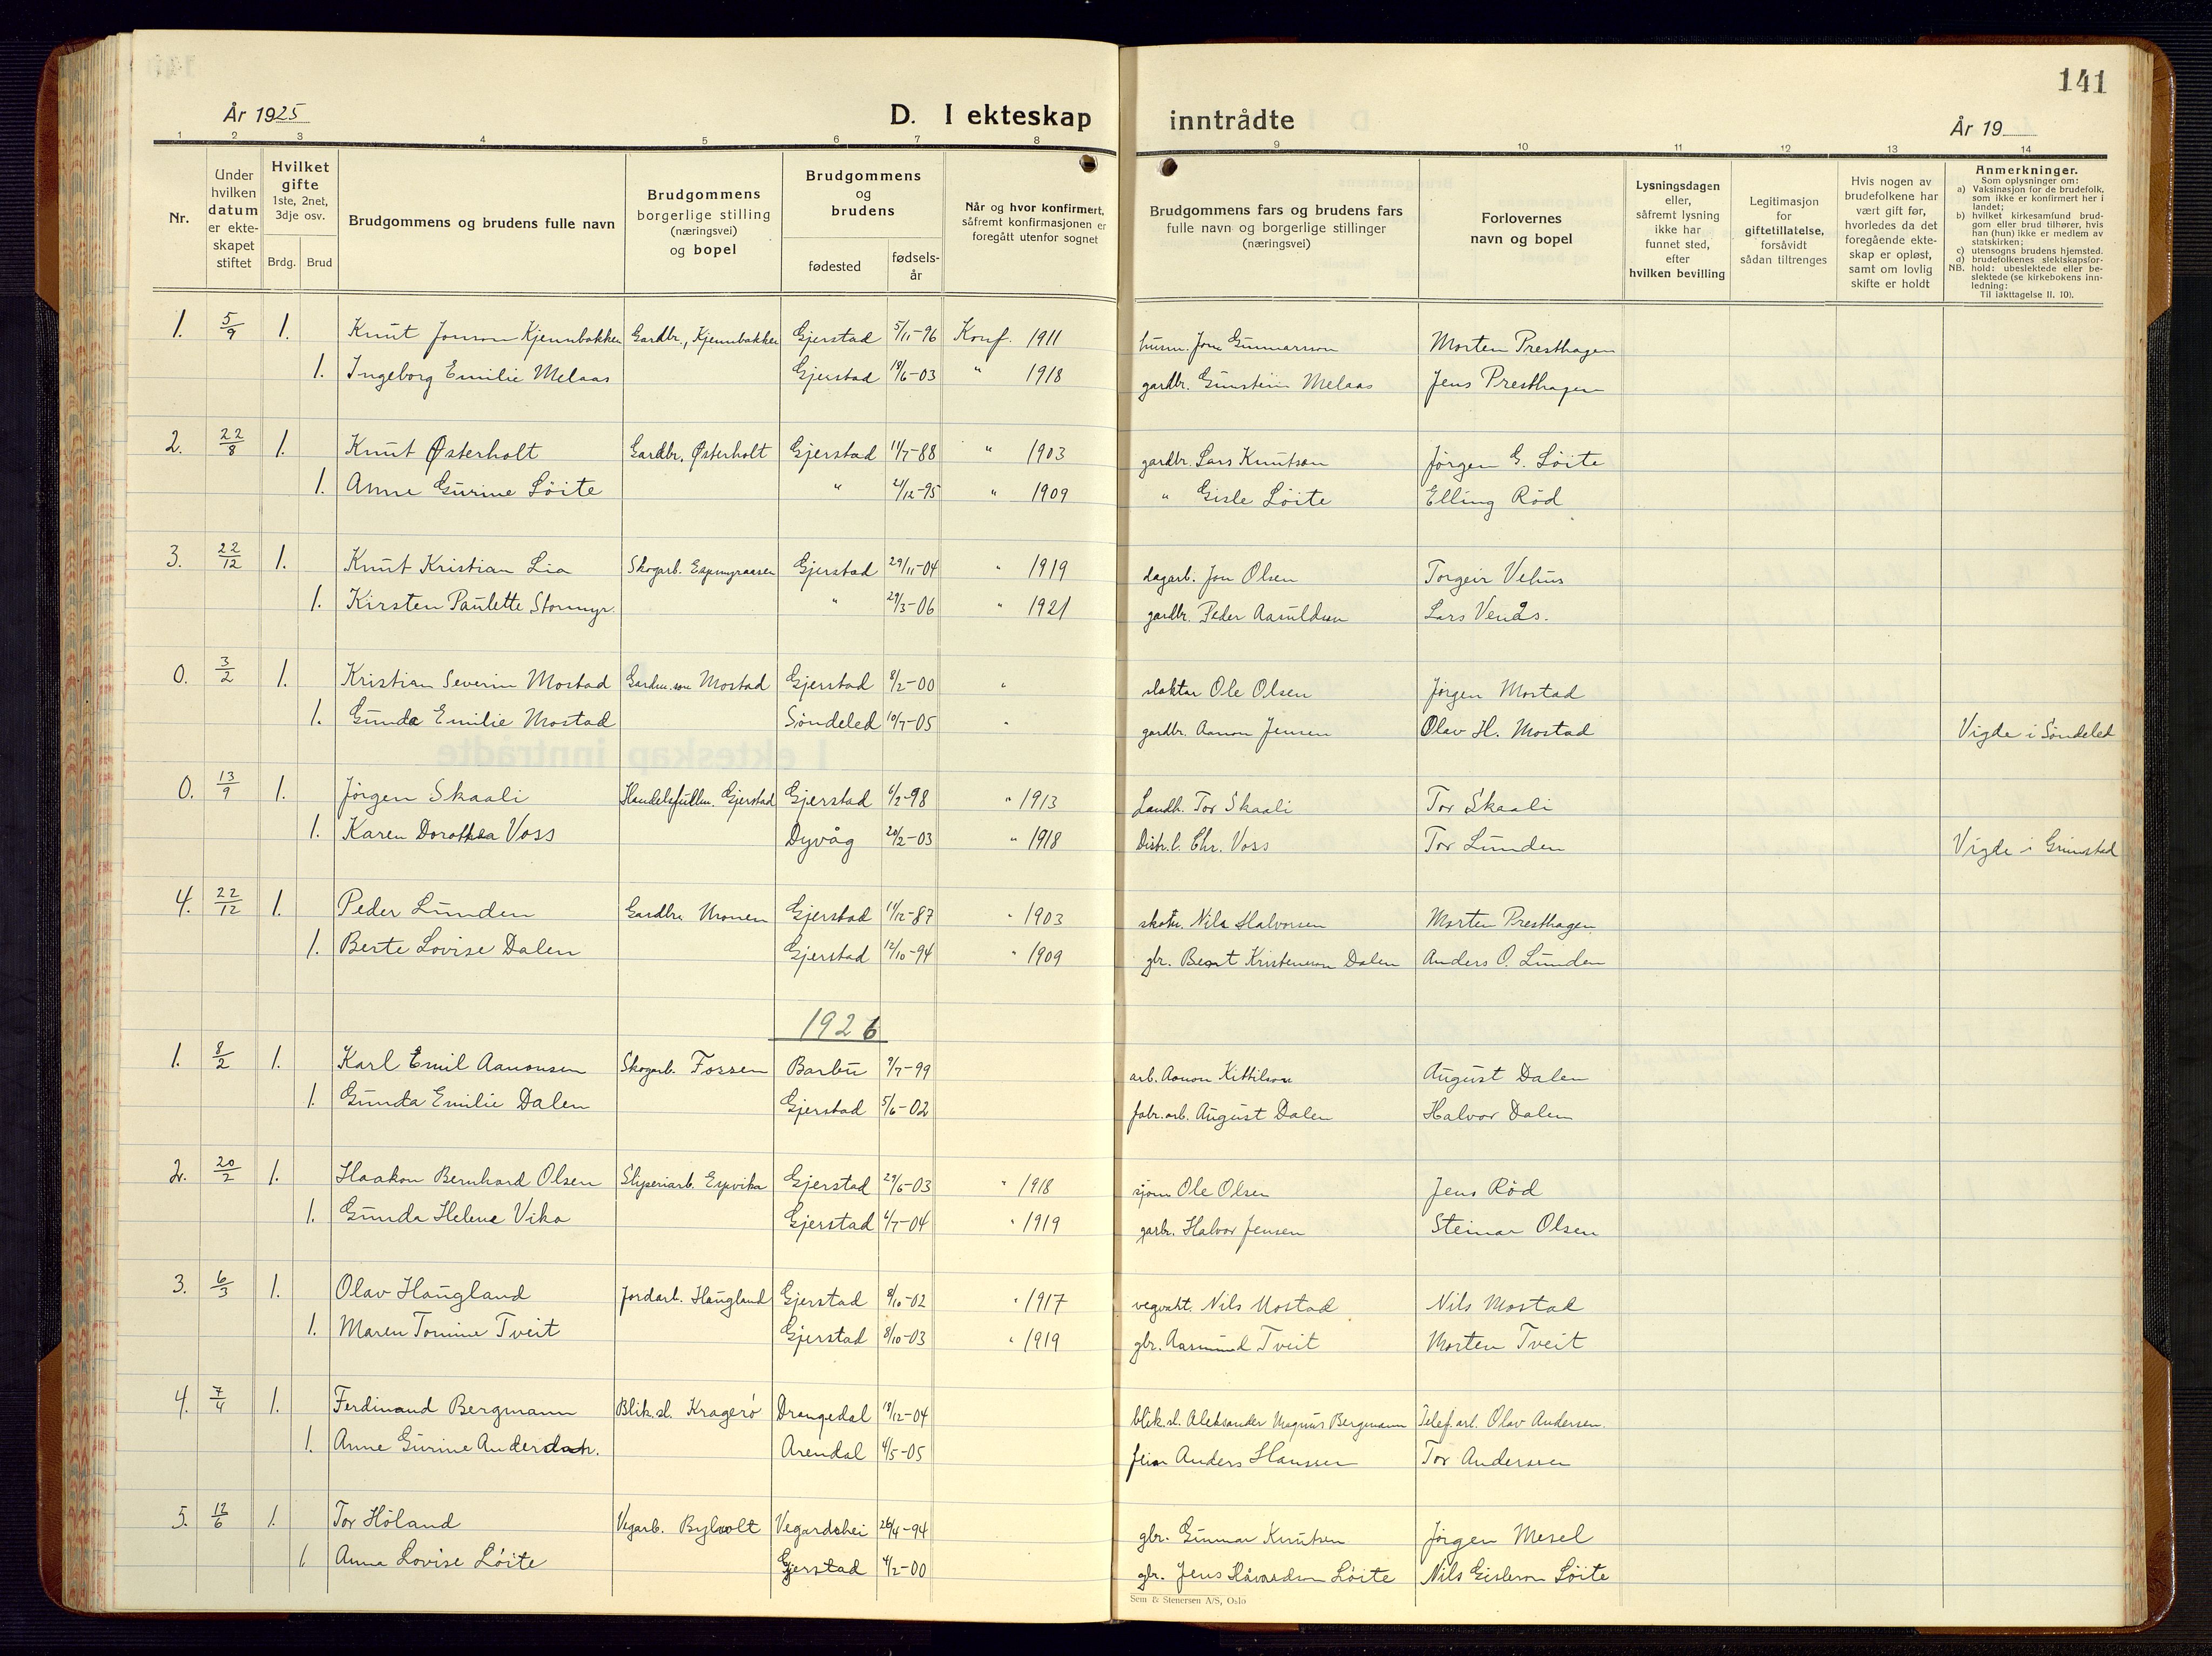 141
År 1925
D. I ekteskap inntrådte
År 19
1 2 3 4 5 6 7 8 9 10 11 12 13 14
Nr.
Under hvilken datum er ekteskapet stiftet
Hvilket gifte 1ste, 2net, 3dje osv.
Brdg. Brud
Brudgommens og brudens fulle navn
Brudgommens borgerlige stilling (næringsvei) og bopel
Brudgommens og brudens
fødested
fødselsår
Når og hvor konfirmert, såfremt konfirmasjonen er foregått utenfor sognet
Brudgommens fars og brudens fars fulle navn og borgerlige stillinger (næringsvei)
Forlovernes navn og bopel
Lysningsdagen eller, såfremt lysning ikke har funnet sted, efter hvilken bevilling
Legitimasjon for giftetillatelse, forsåvidt sådan tiltrenges
Hvis nogen av brudefolkene har vært gift før, hvorledes da det foregående ekteskap er opløst, samt om lovlig skifte er holdt
Anmerkninger.
Som oplysninger om:
a) Vaksinasjon for de brudefolk, som ikke er konfirmert her i landet;
b) hvilket kirkesamfund brudgom eller brud tilhører, hvis han (hun) ikke er medlem av statskirken;
c) utensogns brudens hjemsted.
d) brudefolkenes slektskapsforhold: ubeslektede eller beslektede (se kirkebokens innledning:
NB. Til iakttagelse II. 10).
1. 5/9 1. Knut Jonson Kjennbakken Gardbr., Kjennbakken Gjerstad 5/11-96 Konf. 1911 husm. Jon Gunnarson Morten Presthagen
1. Ingeborg Emilie Melaas Gjerstad 18/6-03 " 1918 gardbr. Gunstein Melaas Jens Presthagen
2. 22/8 1. Knut Østerholt Gardbr. Østerholt Gjerstad 11/7-88 " 1903 gardbr. Lars Knutson Jørgen G. Löite
1. Anne Gurine Löite " 21/12-95 " 1909 " Gisle Löite Elling Röd
3. 22/12 1. Knut Kristian Lia Skogarb. Gjerstad 29/11-04 " 1919 dagarb. Jon Olsen Torgeir Vehus
1. Kirsten Paulette Stormyr. " 29/3-06 " 1921 gardbr. Peder Aasuldsen Lars Venås.
0. 3/2 1. Kristian Severin Mostad Gardm.son Mostad Gjerstad 8/2-00 " slaktar Ole Olsen Jørgen Mostad
1. Gunda Emilie Mostad Söndeled 10/7-05 " gardbr. Aanon Jensen Olav H. Mostad Vigde i Söndeled
0. 13/9 1. Jörgen Skaali Handelsfullm. Gjerstad Gjerstad 6/2-98 " 1913 Landh. Tor Skaali Tor Skaali
1. Karen Dorothea Voss Dyvåg 20/2-03 " 1918 Distr.l. Chr. Voss Tor Lunden Vigde i Grimstad
4. 22/12 1. Peder Lunden Gardbr. Gjerstad 11/12-87 " 1903 Nils Halvorsen Morten Presthagen
1. Berte Lovise Dalen Gjerstad 12/10-94 " 1909 gbr. Bent Kristenson Dalen Anders O. Lunden
1926
1. 8/2 1. Karl Emil Aanonsen Skogarb. Fossen Barbu 9/7-99 arb. Aanon Kittilson August Dalen
1. Gunda Emilie Dalen Gjerstad 5/6-02 fabr.arb. August Dalen Halvor Dalen
2. 20/2 1. Haakon Bernhard Olsen Sliperiarb. Eppvika Gjerstad 29/6-03 " 1918 sjöm. Ole Olsen Jens Röd
1. Gunda Helene Vika Gjerstad 6/7-04 " 1919 garbr. Halvor Jensen Steinar Olsen
3. 6/3 1. Olav Haugland Jordarb. Haugland Gjerstad 8/10-02 " 1917 vegvakt. Nils Mostad Nils Mostad
1. Maren Tomine Tveit Gjerstad 8/10-03 " 1919 gbr. Aasmund Tveit Morten Tveit
4. 7/4 1. Ferdinand Bergmann Blik.sl. Kragerö Drangedal 18/12-04 blik.sl. Aleksander Magnus Bergmann Telef.arb. Olav Andersen.
1. Anne Gurine Andersdatr. Arendal 4/5-05 feiar Anders Hanssen Tor Anderssen
5. 12/6 1. Tor Höland Vegarb. Bylvolt Vegardshei 26/4-94 gbr. Gunnar Knutsen Jørgen Mesel
1 Anna Lovise Löite Gjerstad 4/2-00 gbr. Jens Håvardson Löite Nils Gisleson Löite
Sem & Stenersen A/S, Oslo